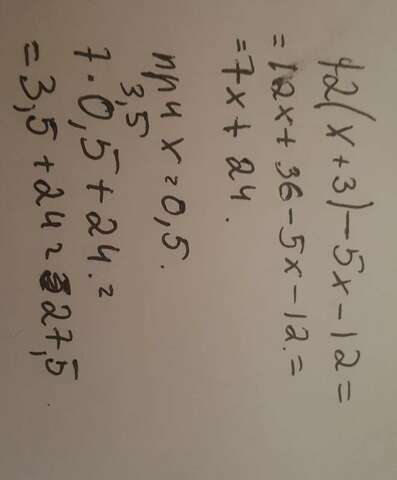 12(x+3)-5x-12=
=12x+36-5x-12.=
=7x+24.
при x=0,5.
3,5
7·0,5+24.=
=3,5+24=27,5.